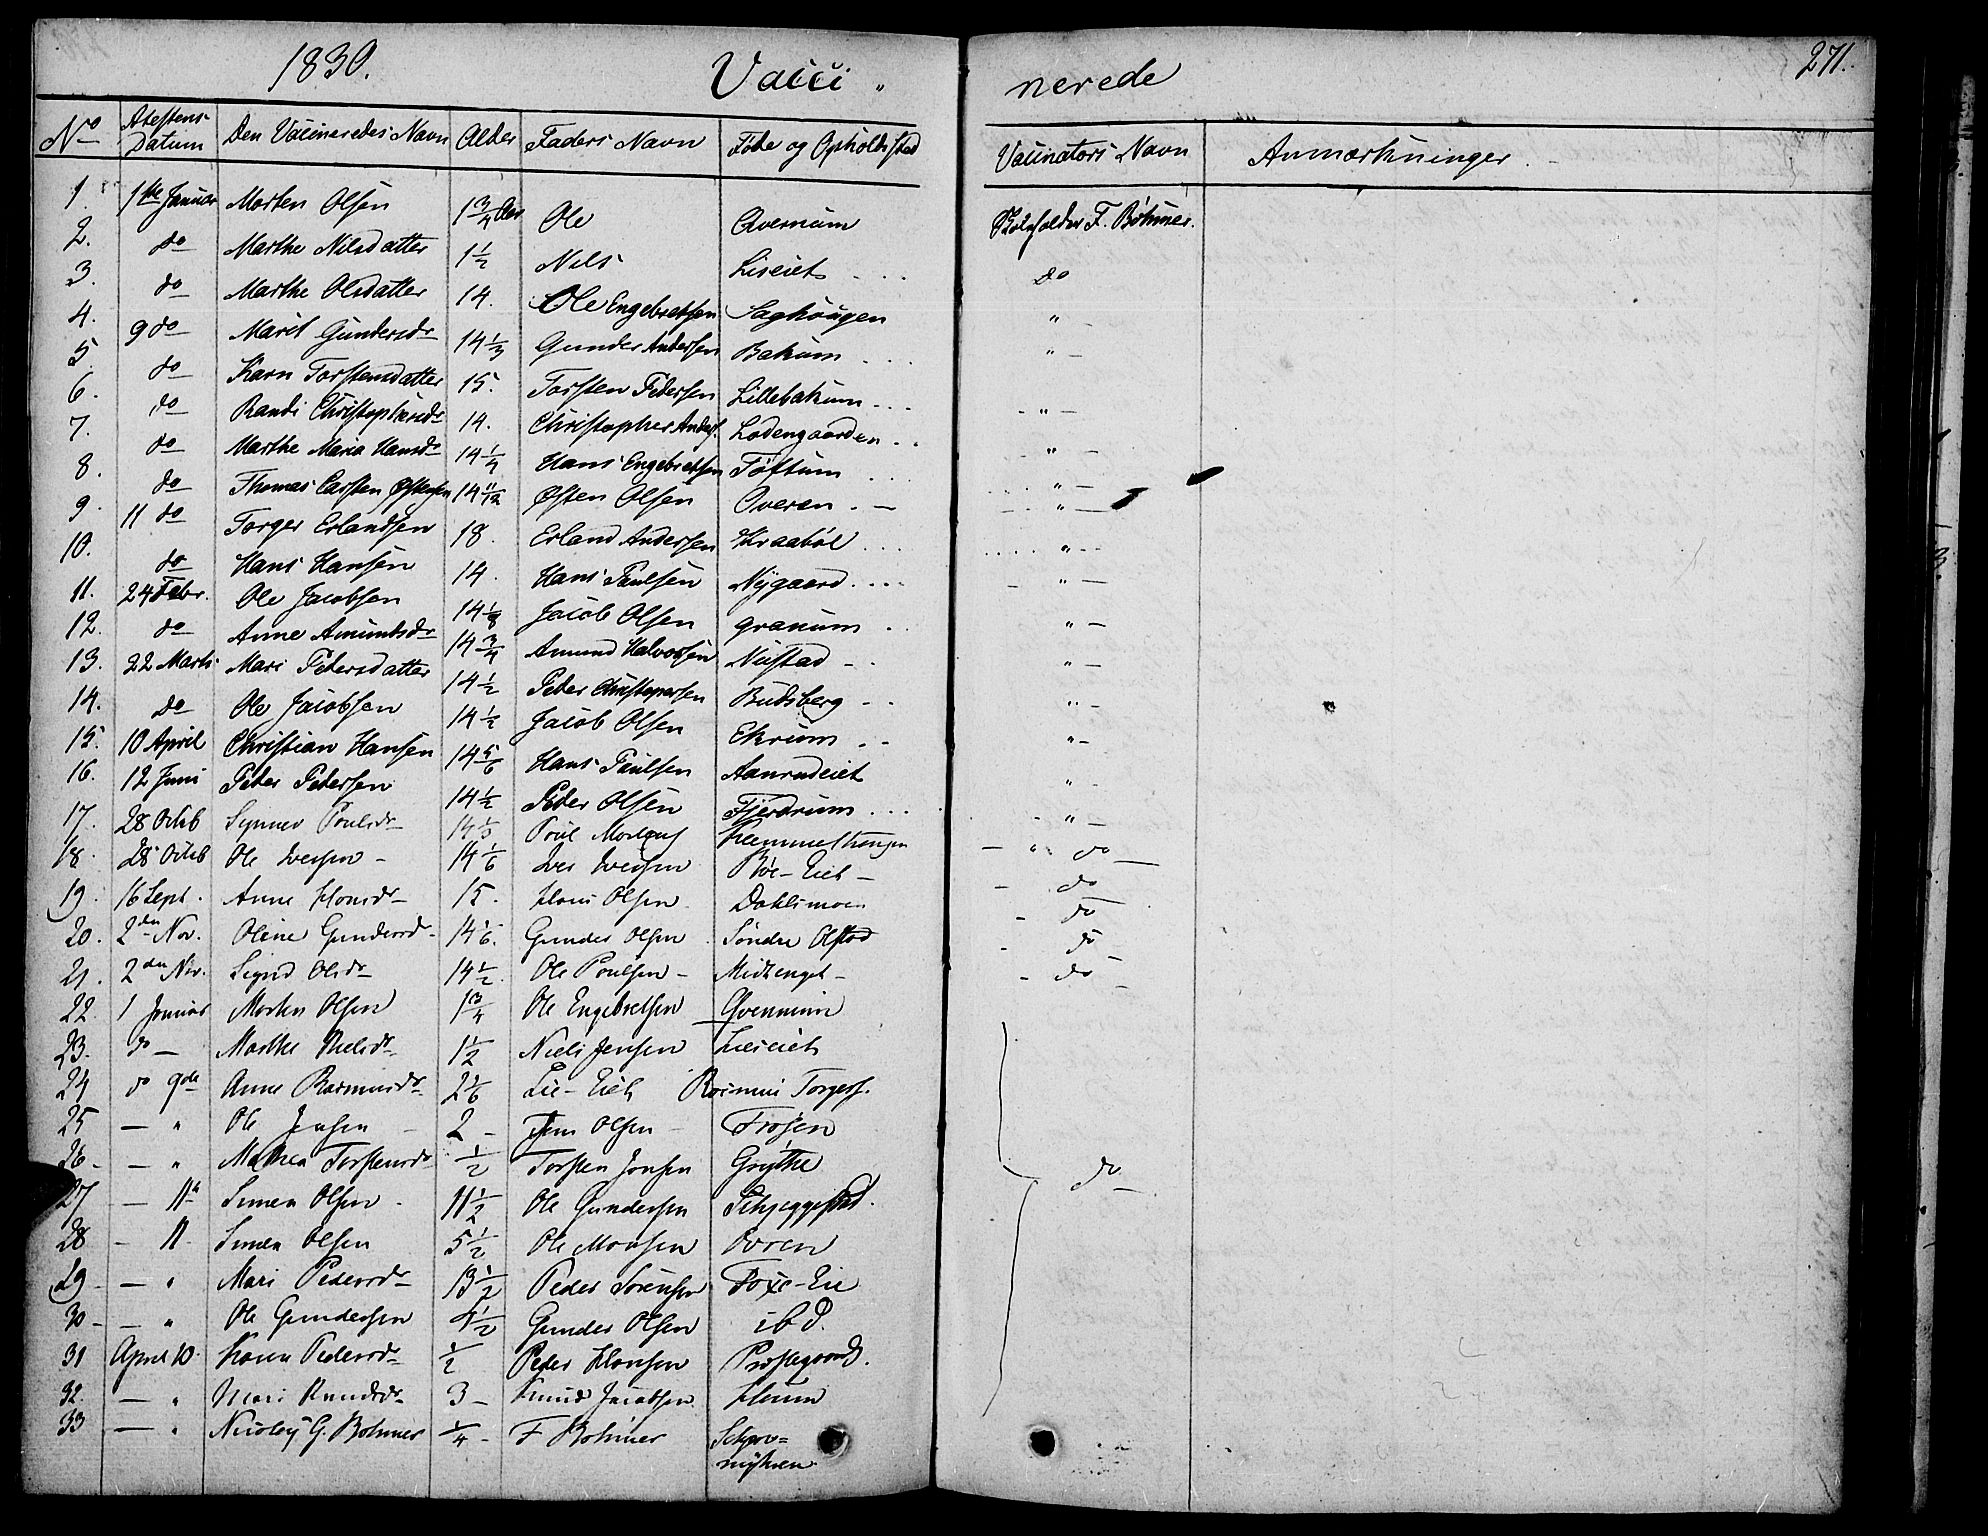 1830. Vacci„ nerede 271.
No Attestens Datum Den Vaccineredes Navn Alder Faders Navn Føde og Opholdsstad Vaccinators Navn Anmærkninger.
1. 1ste Januar Morten Olsen 1 3/4 Aar Ole Qvernum F. Bøhmer.
2. do Marthe Nilsdatter 1 1/2 Nils Lieeiet do
3. do Marthe Olsdatter 14. Ole Engebretsen Saghougen "
4. 9 do Marit Gundersdr 14 1/3 Gunder Andersen Bakum "
5 do Karn Torstensdatter 15. Torsten Pedersen Lillebakum "
6. do Randi Christophersdr 14. Christopher Anders. Ladengaarden "
7. do Marthe Maria Hansdr 14 1/4 Hans Engebretsen Toftum "
8. do Thomas Carsten Østensen 14 11/12 Østen Olsen Overen "
9. 11 do Torger Erlandsen 18. Erland Andersen Kraabøl "
10. do Hans Hansen 14. Hans Paulsen Nygaard "
11. 24 Febr. Ole Jacobsen 14 1/8 Jacob Olsen Granum "
12. do Anne Amundsdr 14 3/4 Amund Halvorsen Nustad "
13. 22 Marts Mari Petersdatter 14 1/2 Peter Christopersen Budsberg "
14. do Ole Jacobsen 14 1/2 Jacob Olsen Ekrum "
15. 10 April Christian Hansen 14 5/6 Hans Paulsen Aanrudeiet "
16. 12 Juni Peter Petersen 14 1/2 Peder Olsen Fjerdrum "
17. 28 Octob Poulsdr 14 1/3 Poul " do
18. 28 Octob Ole Iversen 14 1/6 Iver Iversen Bøe-Eiet do
19. 16 Sept. Anne Hansdr 15. Hans Olsen Dahlsmoen do
20. 2den Nov. Oline Gundersdr 14 1/6. Gunder Olsen Søndre Olstad do
21. 2den Nov. Sigrid Olsdr 14 1/2. Ole Poulsen Midtenget do
22. 1 Januar Morten Olsen 1 3/4 Ole Engebretsen Qvernum
23. do Marthe Nielsdr 1 1/2 Niels Jensen Lieeiet
24 do 9de Anne Rasmusdr 2 1/6 Lie-Eiet Rasmus Torgers.
25 — " Ole Jensen 2 Jens Olsen Frøsen
26 — " Mathea Torstensdr 1/2 Torsten Jonsen Grythe do
27 — 11te Simen Olsen 11 1/2 Ole Gundersen Skjeggestad.
28 — 11 Simen Olsen 5 1/2 Ole Monsen Ovren
29 — " Mari Pedersdr 13 1/2 Peder Sørensen Foxe-Eie
30 — " Ole Gundersen 4 1/2 Gunder Olsen ibd.
31 April 10. Karen Pedersdr 1/2 Peder Hansen Præstegaard.
32. — " Mari Knudsdr 3 Knud Jacobsen
33 — " Nicolay G. Bohmer 1/4 F Bohmer